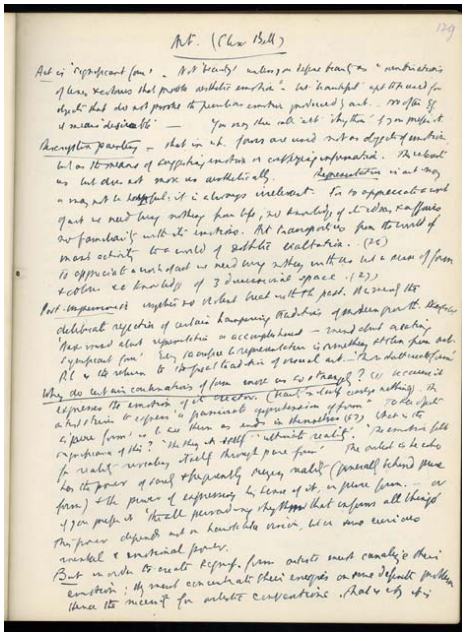 129
Art. (Clive Bell)
Art is "significant form". Not "beauty" unless you define beauty as a "combination
of lines & colours that provoke aesthetic emotion" - but "beautiful" apt to be used for
objects that do not provoke the peculiar emotion produced by art. so often
it means 'desirable' — You may then call it 'rhythm' if you prefer it
Descriptive painting - that in wh. forms are used not as objects of emotion
but as the means of suggesting emotion or conveying information. This interests
us but does not move us aesthetically. Representation in art may
or may not be harmful; it is always irrelevant. For to appreciate a work
of art we need bring nothing from life, no knowledge of its ideas & affairs
no familiarity with its emotions. Art transports us from the world of
man's activity to a world of aesthetic exaltation. (25)
To appreciate a work of art we need bring nothing with us but a sense of form
& colour & a knowledge of 3 dimensional space. (27)
Post-Impressionism implies no violent break with the past. It is merely the
deliberate rejection of certain hampering traditions of modern growth.
mind about representation or accomplishment - mind about creating
significant form. Every sacrifice to representation is something stolen from art.
P.I. is the return to the great tradition of visual art.
Why do certain combinations of form move us so strangely? Because it
expresses the emotion of its creator. (
artist's is to express "a passionate apprehension of form" To
a 'pure form' is to see them as ends in themselves (52) What is the
significance of this? "the thing in itself" "ultimate reality". The emotion felt
for reality revealing itself through pure form" The artist is he who
has the power of surely & frequently seizing reality (generally behind pure
form) & the power of expressing his sense of it, in pure form. — or
if you prefer it "the all pervading rhythm that informs all things"
This power depends not on hawklike vision, but on some curious
mental & emotional power.
But in order to create signif. form artists must canalize their
emotion; they must concentrate their energies on some definite problem
Hence the necessity for artistic conventions. That is why it is